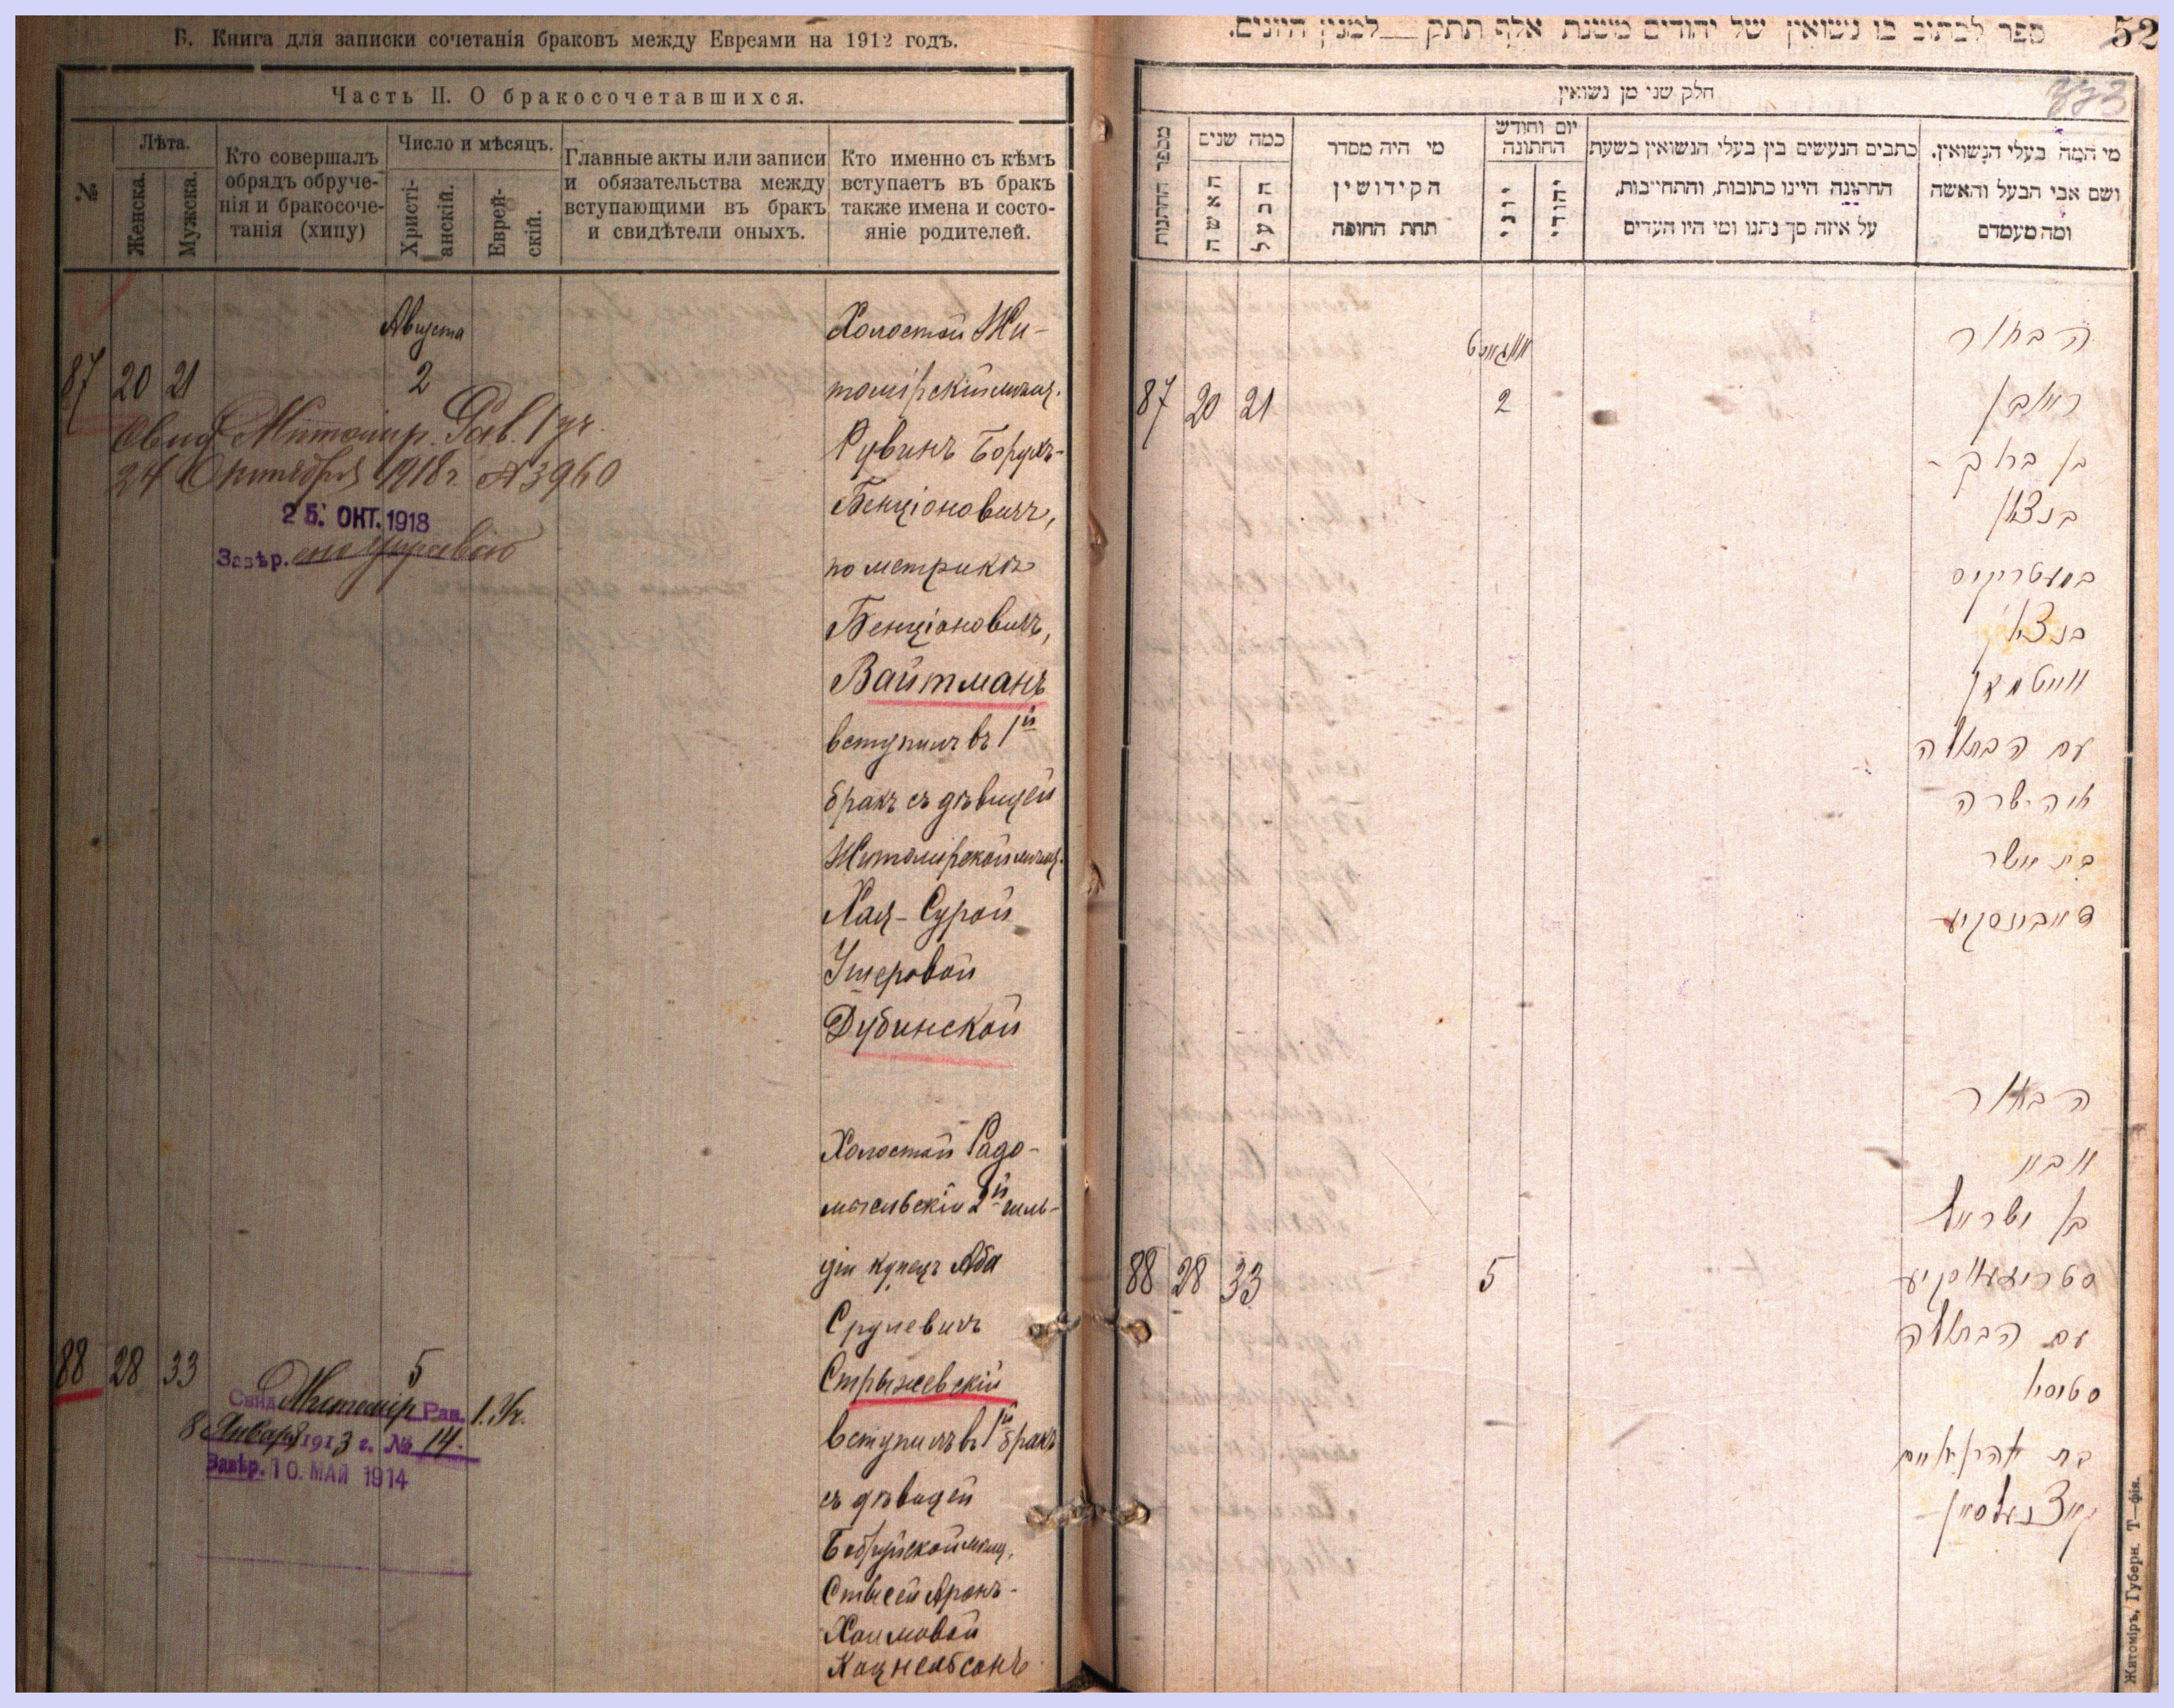 Б. Книга для записки сочетанія браковъ между Евреями на 1912 годъ.
Часть II. О бракосочетавшихся.
№
Лѣта.
Женска.
Мужска.
Кто совершалъ
обрядъ обруче-
нія и бракосоче-
танія (хипу)
Число и мѣсяцъ.
Христі-
анскій.
Еврей-
скій.
Главные акты или записи
и обязательства между
вступающими въ бракъ
и свидѣтели оныхъ.
Кто именно съ кѣмъ
вступаетъ въ бракъ
также имена и состо-
яніе родителей.
Августа
87 20 21 2
Свид. Житомір. Рав. 1 уч.
24 Октября 1918 г. № 3960
25. ОКТ. 1918
Завѣр.
Холостой Жи-
томірскій мѣщ.
Рувинъ Борухъ-
Бенціоновичъ,
по метрикѣ
Бенціоновичъ,
Вайтманъ
вступилъ въ 1й
бракъ съ дѣвицей
Житомірской мѣщ.
Хая-Сурой
Ушеровой
Дубинской
88 28 33 5
Свид. Житомір Рав. 1. Уч.
8 Января 1913 г. № 14.
Завѣр. 10. МАЙ 1914
Холостой Радо-
мысльскій 2й гиль-
діи купецъ Аба
Срулевичъ
Стрыжевскій
вступилъ въ 1й бракъ
съ дѣвицей
Бобруйской мѣщ.
Стысей Аронъ-
Хаимовой
Кацнельсонъ
ספר לכתוב בו נשואין של יהודים משנת אלף תתק למנין היונים.
52
333
חלק שני מן נשואין
מספר החתנות
כמה שנים
האשה
הבעל
מי היה מסדר
הקידושין
תחת החופה
יום וחודש
החתונה
יוני
יהודי
כתבים הנעשים בין בעלי הנשואין בשעת
החתונה היינו כתובות, והתחייבות,
על איזה סך נתנו ומי היו העדים
מי המה בעלי הנשואין.
ושם אבי הבעל והאשה
ומה מעמדם
אווגוסט
87 20 21 2
הבחור
ראובן
בן ברוך-
בנציון
במעטריקיס
בנציון
ווייטמאן
עם הבתולה
חיה שרה
בת אשר
דובינסקיע
הבחור
אבא
בן ישראל
88 28 33 5
סטריזעווסקיע
עם הבתולה
סטיסא
בת אהרן חיים
קאצנעלסאן
Житоміръ, Губерн. Т—фія.